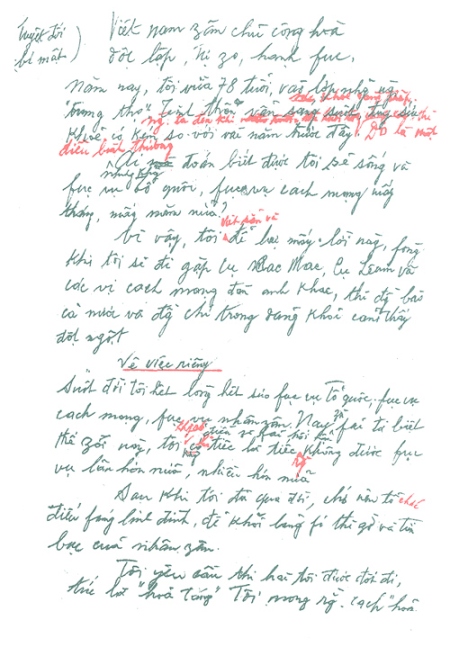 Tuyệt đối
bí mật
Việt nam zân chủ cộng hoà
độc lập, tự zo, hạnh fúc.
Năm nay, tôi vừa 78 tuổi, vào lớp những người
"trung thọ". Tinh thần vẫn sáng suốt, tuy sức
khoẻ có kém so với vài năm trước đây. Đó là một
điều bình thường.
Ai mà đoán biết được tôi sẽ sống và
fục vụ tổ quốc, fục vụ cách mạng mấy
tháng, mấy năm nữa?
Vì vậy, tôi để lại mấy lời này, fòng
khi tôi sẽ đi gặp cụ Các Mác, cụ Lênin và
các vị cách mạng đàn anh khác, thì đồng bào
cả nước và đồng chí trong đảng khỏi cảm thấy
đột ngột.
Về việc riêng
Suốt đời tôi hết lòng hết sức fục vụ Tổ quốc, fục vụ
cách mạng, fục vụ nhân zân. Nay zù fải từ biệt
thế zới này, tôi không có điều gì fải hối hận,
chỉ tiếc là tiếc không được fục
vụ lâu hơn nữa, nhiều hơn nữa.
Sau khi tôi đã qua đời, chớ nên tổ chức
điếu fúng linh đình, để khỏi lãng fí thì giờ và tiền
bạc của nhân zân.
Tôi yêu cầu thi hài tôi được đốt đi,
tức là "hoả táng". Tôi mong rằng cách "hoả